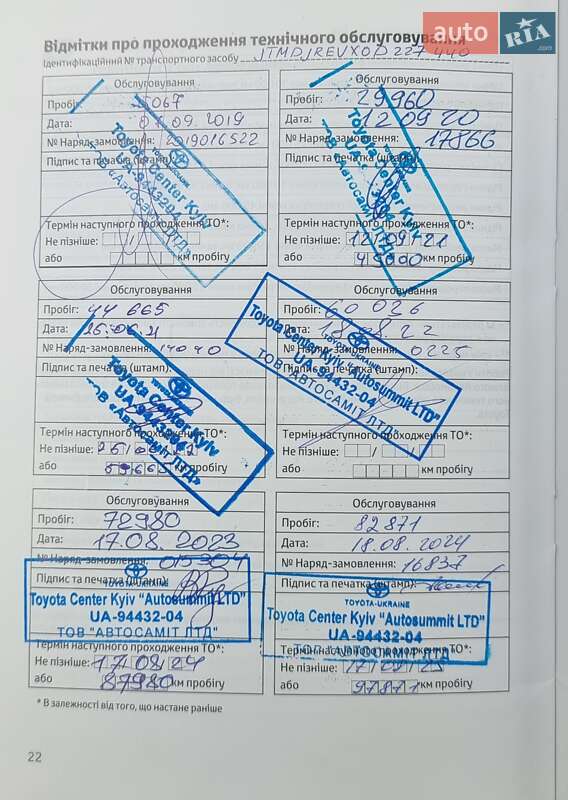 auto RIA.com
Відмітки про проходження технічного обслуговування
Ідентифікаційний № транспортного засобу JTMDJREVX0D 227 440
Обслуговування
Пробіг: 067
Дата: 09.2019
№ Наряд-замовлення: 2019016522
Підпис та печатка (штамп):
TOYOTA-UKRAINE
Toyota Center Kyiv
UA-94432-04
«Автосаміт ЛТД»
Термін наступного проходження ТО*:
Не пізніше:
або км пробігу
Обслуговування
Пробіг: 29960
Дата: 12 09 20
№ Наряд-замовлення: 17866
Підпис та печатка (штамп):
Toyota Center Kyiv
«Автосаміт ЛТД»
Термін наступного проходження ТО*:
Не пізніше: 12/09/21
або 45000 км пробігу
Обслуговування
Пробіг: 44 665
Дата: 26.06.21
№ Наряд-замовлення: 14040
Підпис та печатка (штамп):
TOYOTA-UKRAINE
Toyota Center Kyiv
UA-94432-04
ТОВ «Автосаміт ЛТД»
Термін наступного проходження ТО*:
Не пізніше:
або 59665 км пробігу
Обслуговування
Пробіг: 60 026
Дата: 18.08.22
№ Наряд-замовлення: 0225
Підпис та печатка (штамп):
TOYOTA-UKRAINE
Toyota Center Kyiv "Autosummit LTD"
UA-94432-04
ТОВ "АВТОСАМІТ ЛТД"
Термін наступного проходження ТО*:
Не пізніше:
або км пробігу
Обслуговування
Пробіг: 72980
Дата: 17.08.2023
№ Наряд-замовлення: 015304
Підпис та печатка (штамп):
TOYOTA-UKRAINE
Toyota Center Kyiv "Autosummit LTD"
UA-94432-04
ТОВ "АВТОСАМІТ ЛТД"
Термін наступного проходження ТО*:
Не пізніше: 17/08/24
або 87980 км пробігу
Обслуговування
Пробіг: 82871
Дата: 18.08.2024
№ Наряд-замовлення: 16837
Підпис та печатка (штамп):
TOYOTA-UKRAINE
Toyota Center Kyiv "Autosummit LTD"
UA-94432-04
ТОВ "АВТОСАМІТ ЛТД"
Термін наступного проходження ТО*:
Не пізніше:
або 97871 км пробігу
* В залежності від того, що настане раніше
22